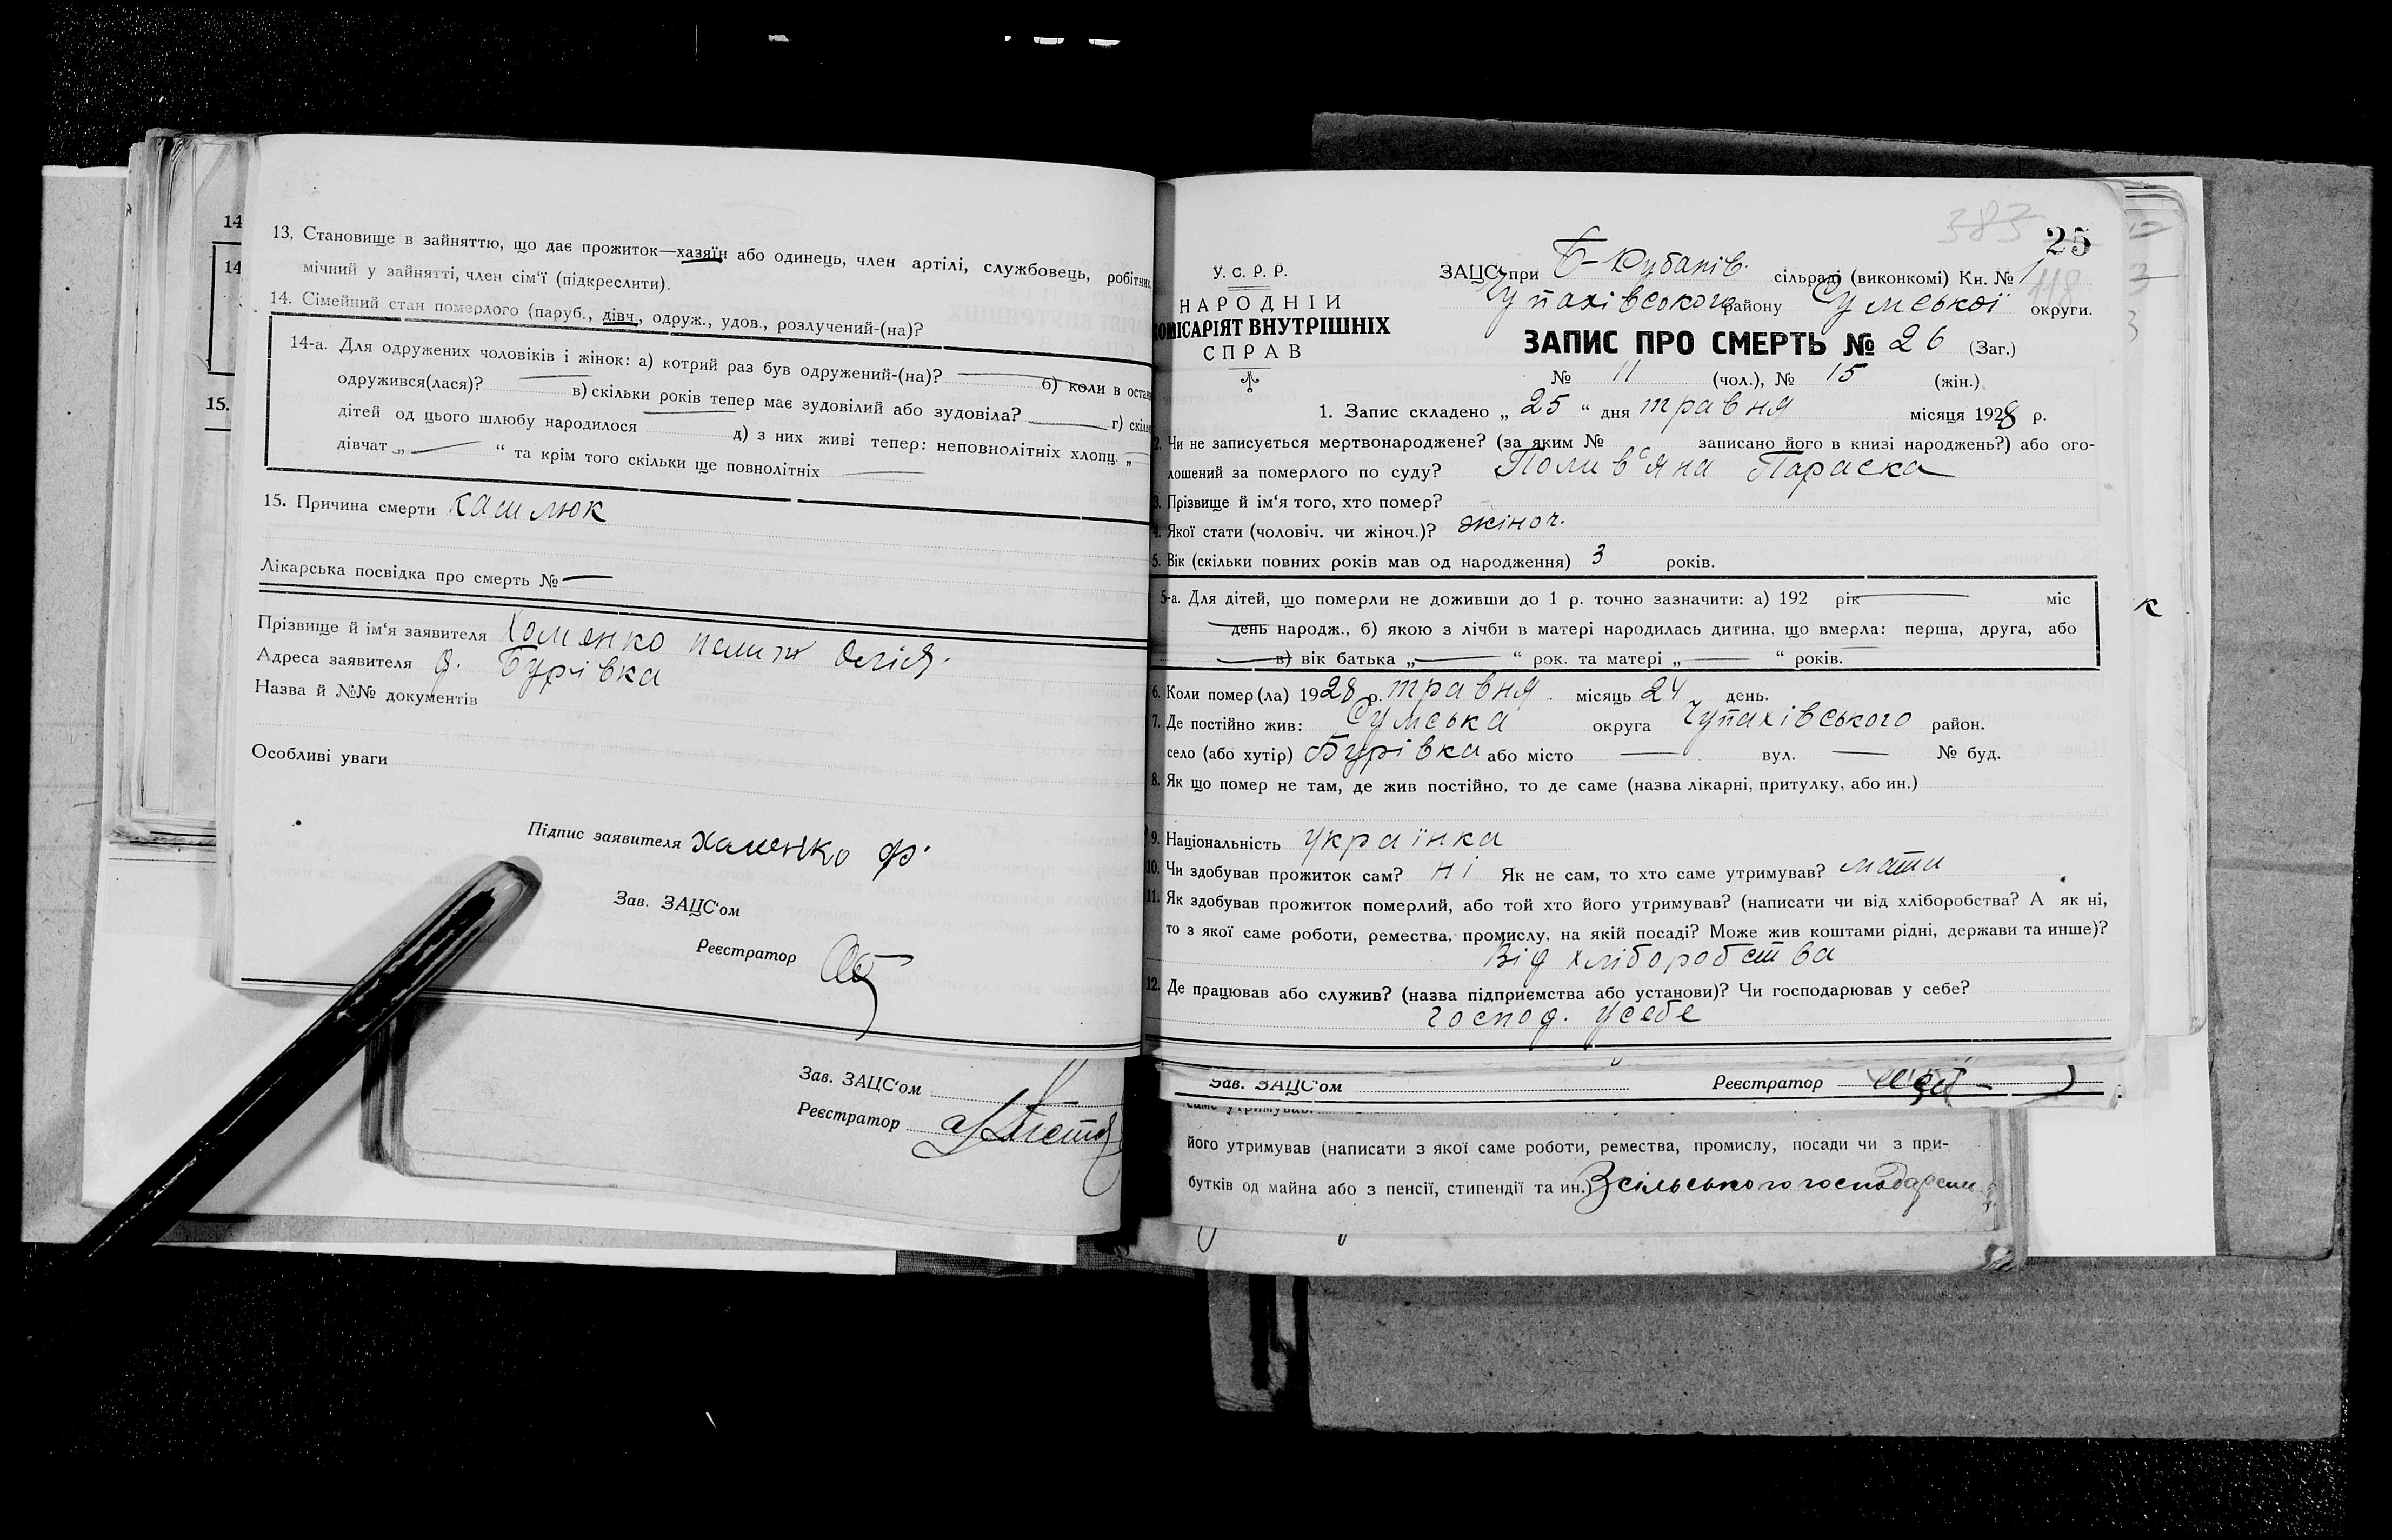 14
14
15.
13. Становище в зайняттю, що дає прожиток—хазяїн або одинець, член артілі, службовець, робітник,
мічний у зайнятті, член сім'ї (підкреслити).
14. Сімейний стан померлого (паруб., дівч., одруж., удов., розлучений-(на)?
14-а. Для одружених чоловіків і жінок: а) котрий раз був одружений-(на)? — б) коли в остан
одружився(лася)? — в) скільки років тепер має зудовілий або зудовіла? — г) скіль
дітей од цього шлюбу народилося — д) з них живі тепер: неповнолітніх хлопц. „ —
дівчат „ — “ та крім того скільки ще повнолітніх —
15. Причина смерти кашлюк
Лікарська посвідка про смерть № —
Прізвище й ім'я заявителя Хоменко
Адреса заявителя Бурівка
Назва й №№ документів
Особливі уваги
Підпис заявителя Хоменко Ф.
Зав. ЗАЦС'ом
Реєстратор
Зав. ЗАЦС'ом
Реєстратор
383
25
118
У. С. Р. Р.
НАРОДНІЙ
КОМІСАРІЯТ ВНУТРІШНІХ
СПРАВ
ЗАЦС при сільраді (виконкомі) Кн. № 1
Чупахівського району Сумської округи.
ЗАПИС ПРО СМЕРТЬ № 26 (Заг.)
№ 11 (чол.), № 15 (жін.)
1. Запис складено „ 25 “ дня травня місяця 1928 р.
2. Чи не записується мертвонароджене? (за яким № записано його в книзі народжень?) або ого-
лошений за померлого по суду? Полив'яна Параска
3. Прізвище й ім'я того, хто помер?
4. Якої стати (чоловіч. чи жіноч.)? жіноч.
5. Вік (скільки повних років мав од народження) 3 років.
5-а. Для дітей, що померли не доживши до 1 р. точно зазначити: а) 192 рік — міс
— день народж., б) якою з лічби в матері народилась дитина, що вмерла: перша, друга, або
— в) вік батька „ — “ рок. та матері „ — “ років.
6. Коли помер(ла) 1928 р. травня місяць 24 день.
7. Де постійно жив: Сумська округа Чупахівського район.
село (або хутір) Бурівка або місто — вул. — № буд.
8. Як що помер не там, де жив постійно, то де саме (назва лікарні, притулку, або ин.)
9. Національність українка
10. Чи здобував прожиток сам? ні Як не сам, то хто саме утримував? мати
11. Як здобував прожиток померлий, або той хто його утримував? (написати чи від хліборобства? А як ні,
то з якої саме роботи, ремества, промислу, на якій посаді? Може жив коштами рідні, держави та инше)?
Від хліборобства
12. Де працював або служив? (назва підприємства або установи)? Чи господарював у себе?
господ. усебе
Зав. ЗАЦС'ом Реєстратор
саме утримував.
його утримував (написати з якої саме роботи, ремества, промислу, посади чи з при-
бутків од майна або з пенсії, стипендії та ин.) Зсільського
к